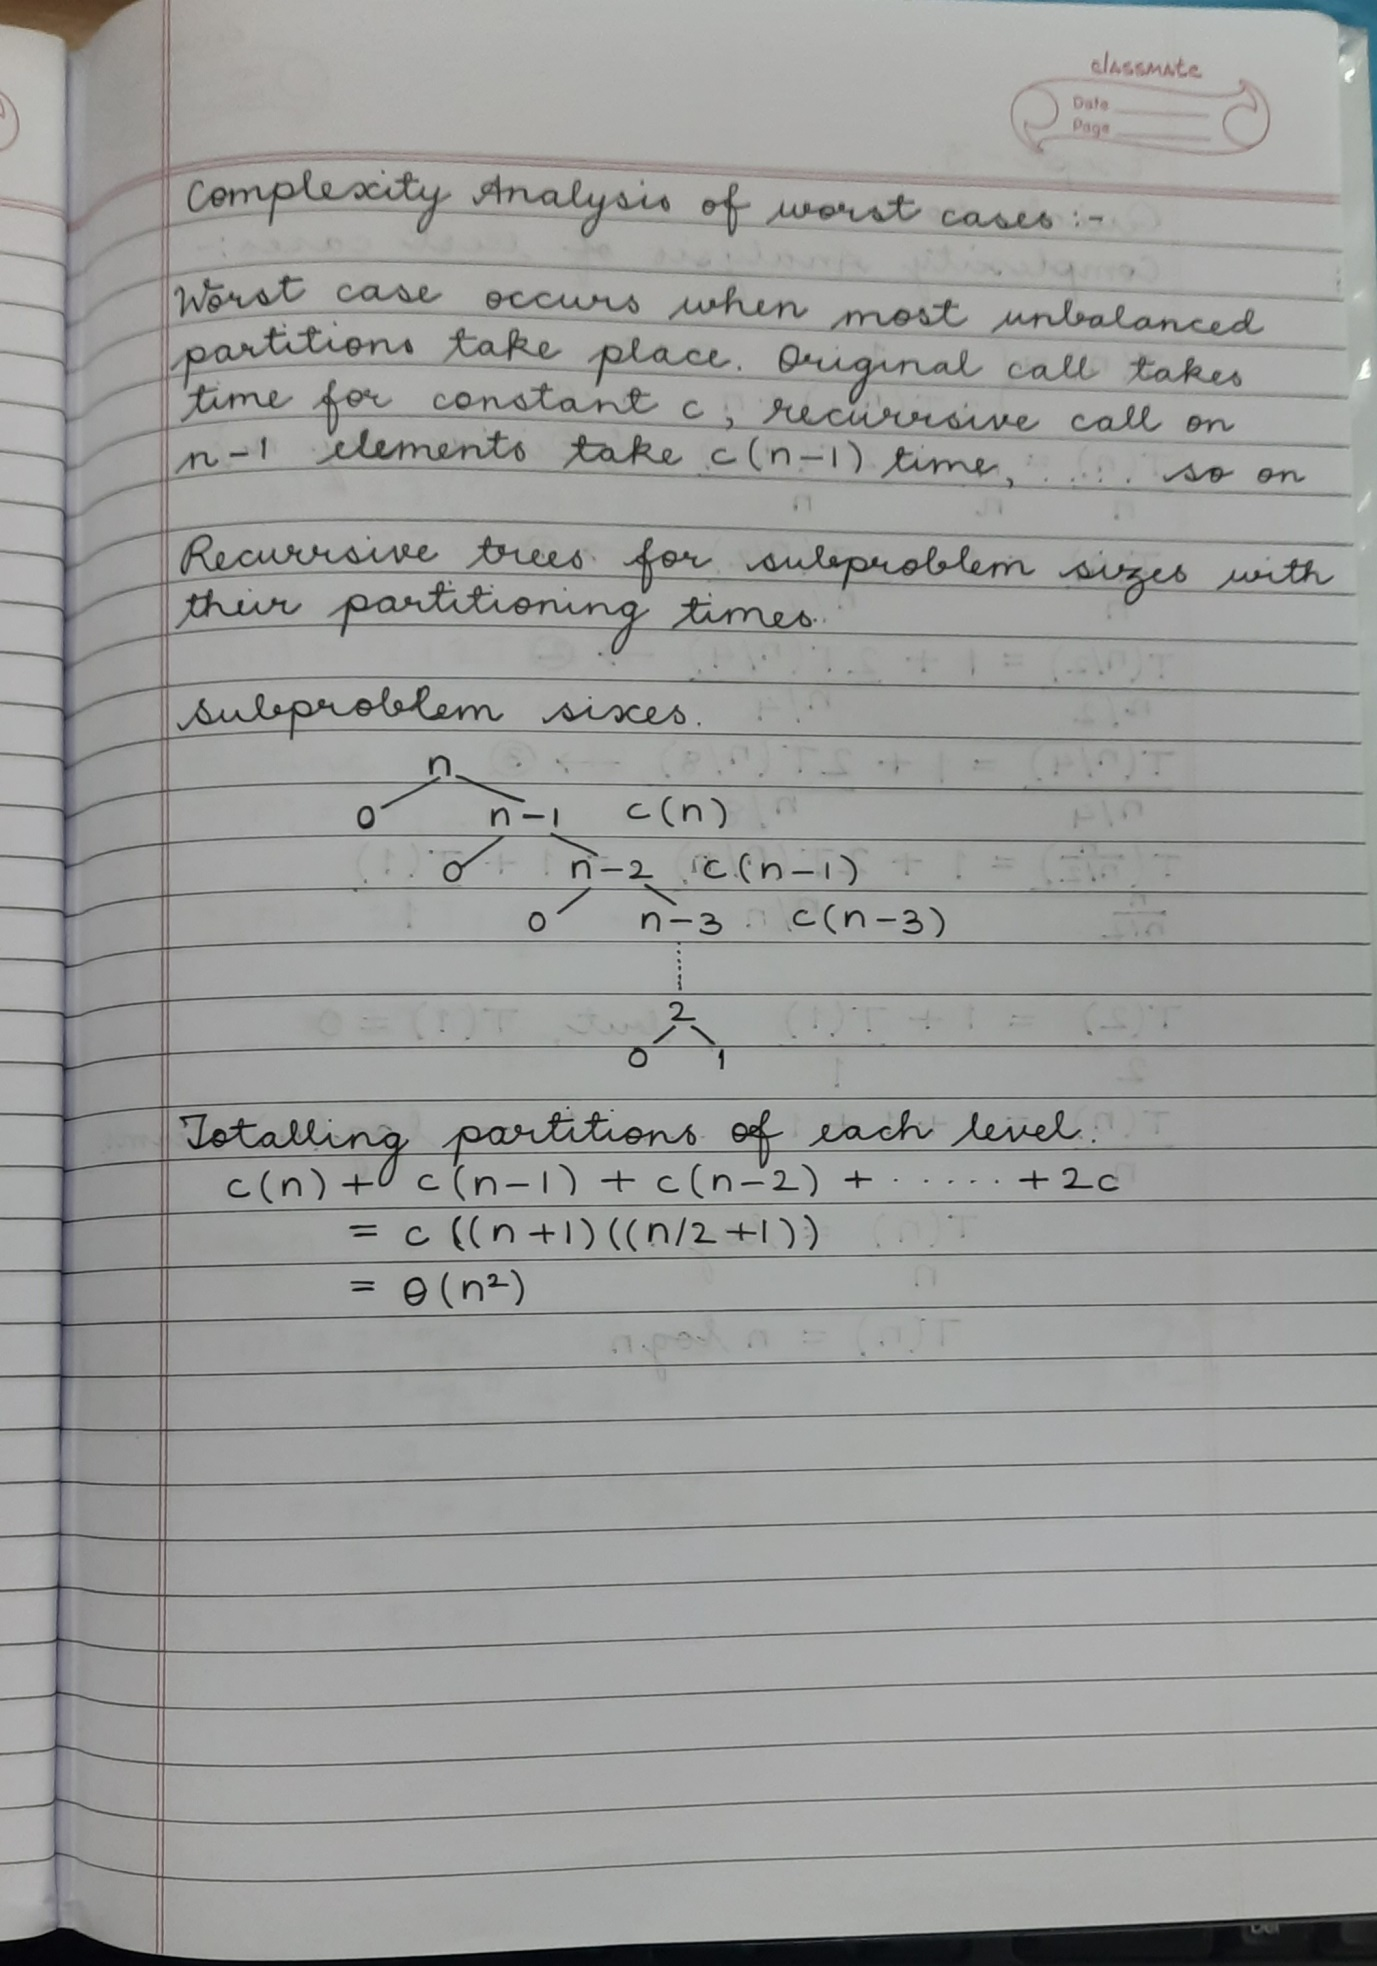 classmate
Date
Page
Complexity Analysis of worst cases :-
Worst case occurs when most unbalanced
partitions take place. Original call takes
time for constant c, recurrsive call on
n-1 elements take c(n-1) time, ..... so on
Recurrsive trees for subproblem sizes with
their partitioning times.
subproblem sixes.
n
0 n-1 c(n)
0 n-2 c(n-1)
0 n-3 c(n-3)
2
0 1
Totalling partitions of each level.
c(n) + c(n-1) + c(n-2) + ...... + 2c
= c ((n+1)((n/2+1))
= θ(n²)